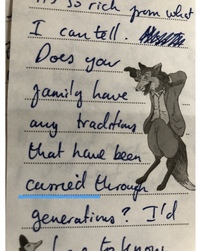 It's so rich from what
I can tell.
Does your
family have
any traditions
that have been
carried through
generations? I'd
love to know